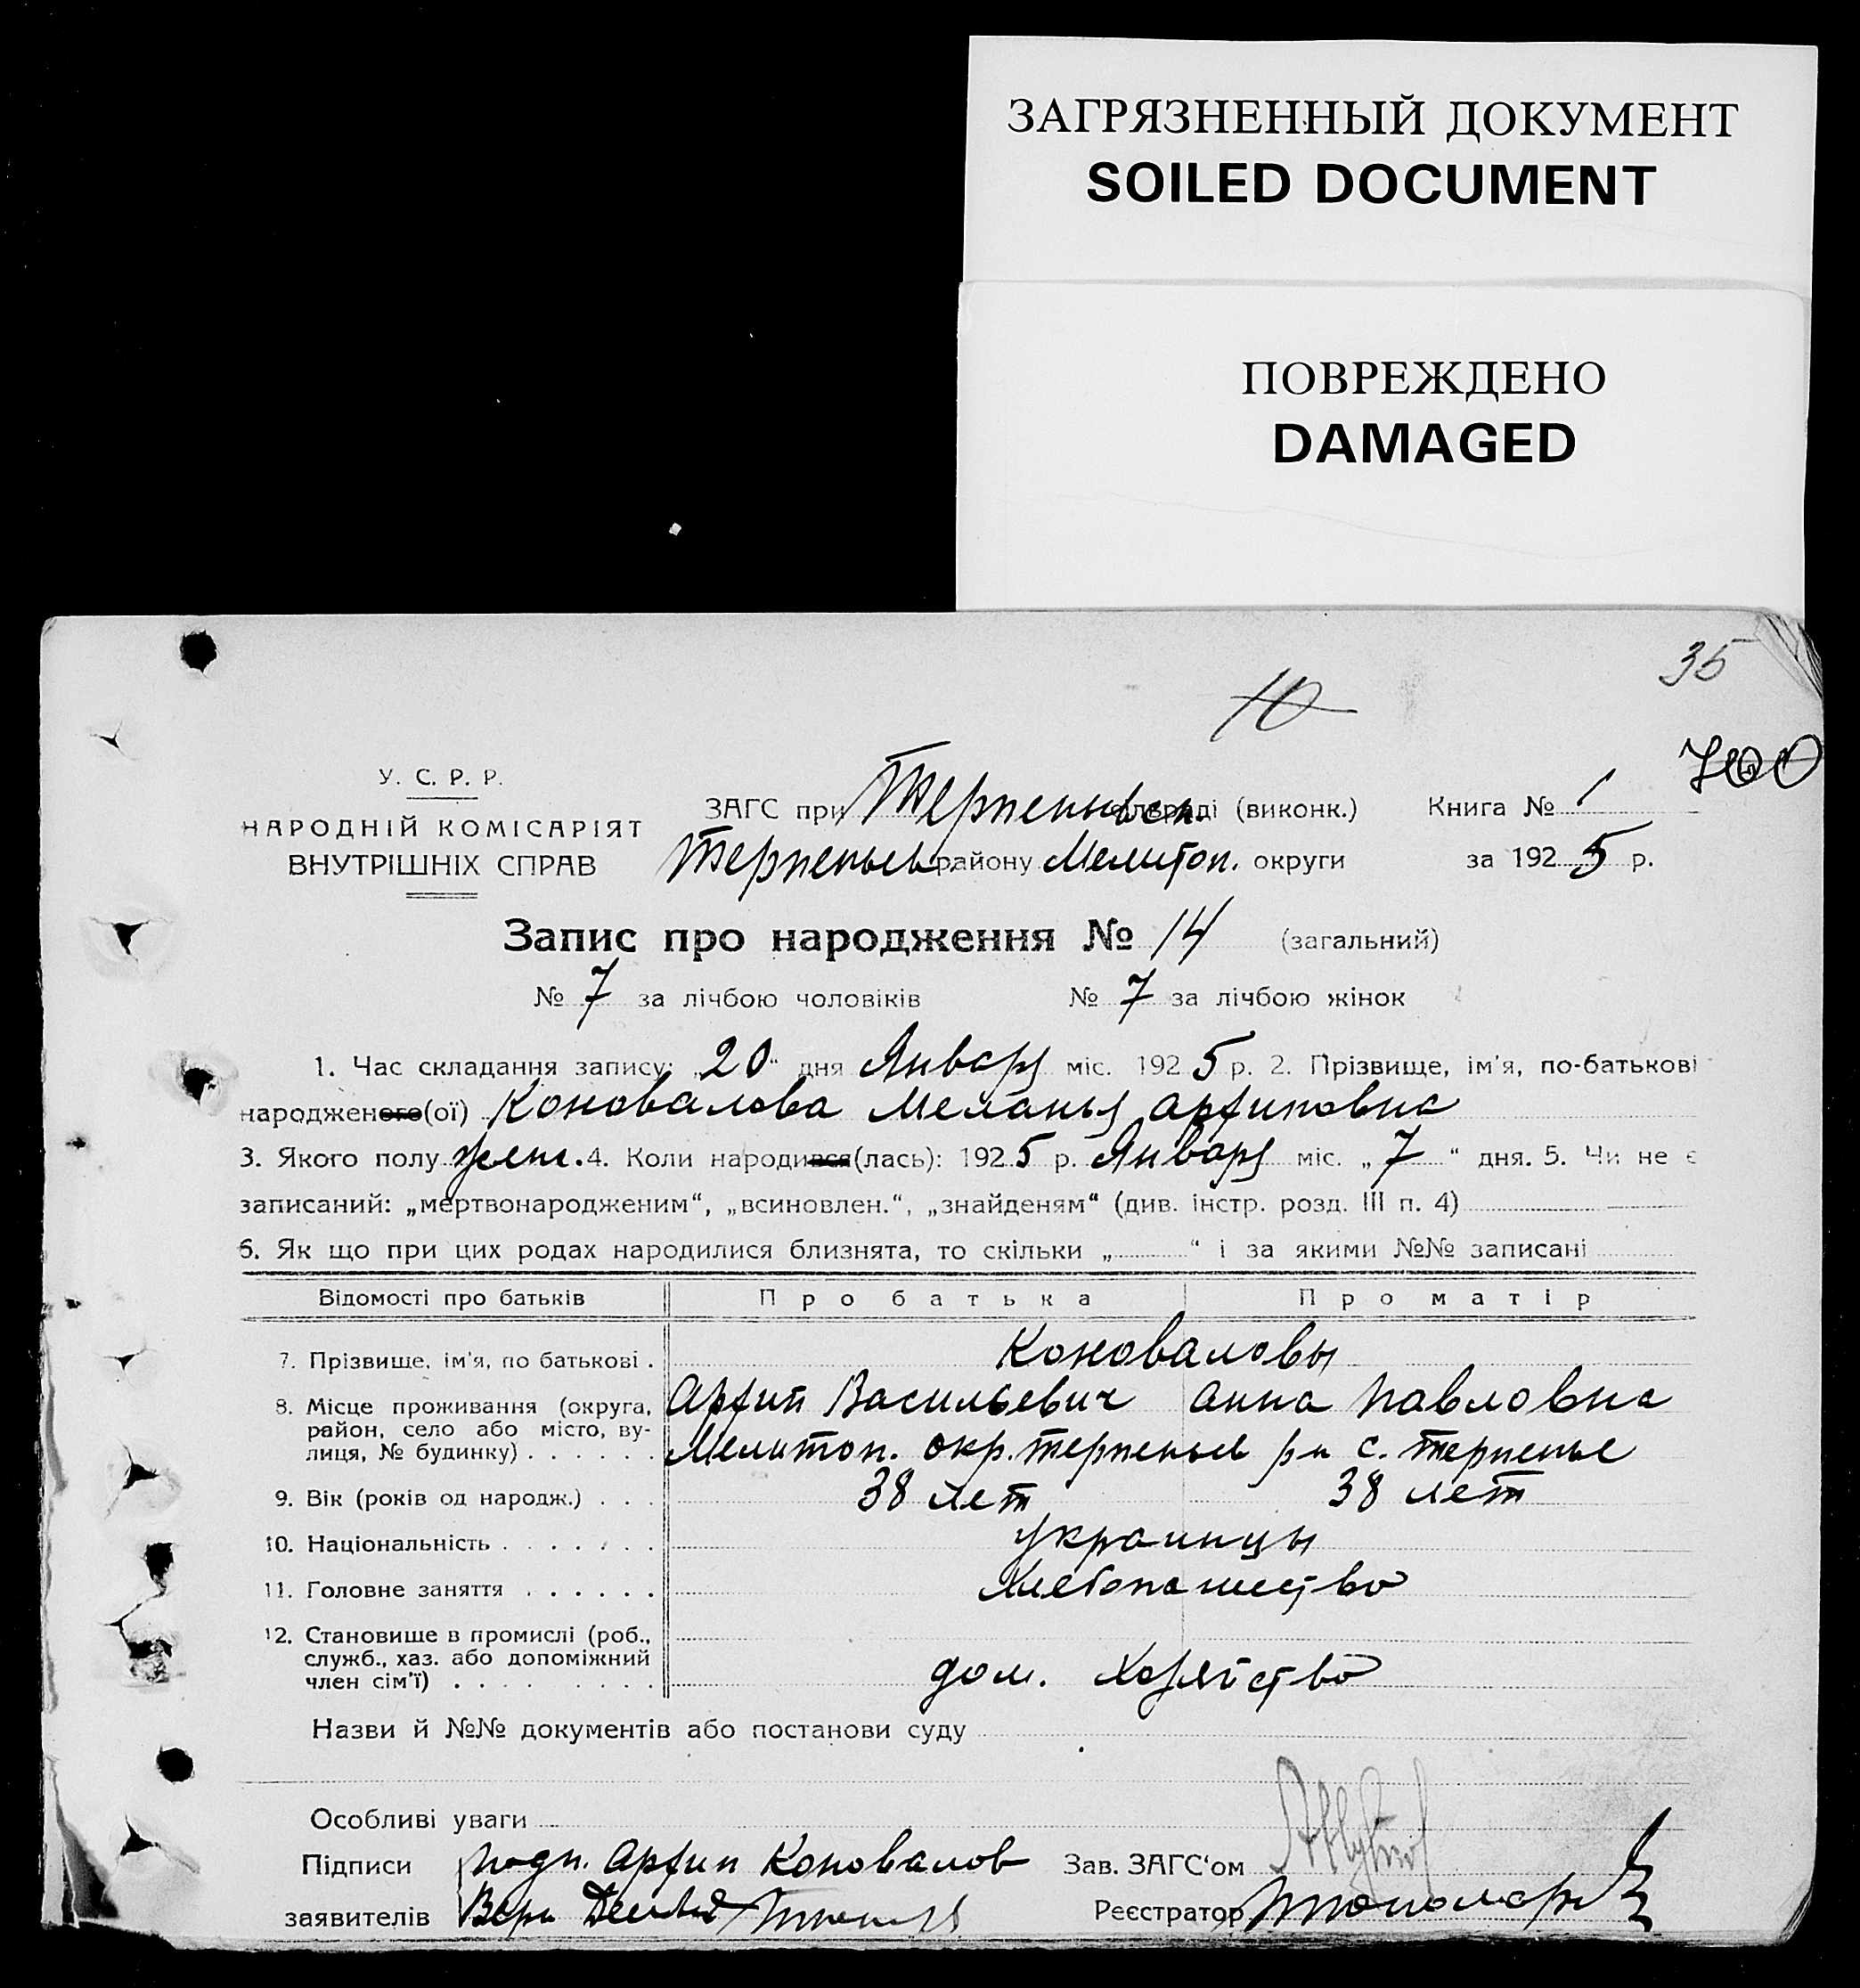 ЗАГРЯЗНЕННЫЙ ДОКУМЕНТ
SOILED DOCUMENT
ПОВРЕЖДЕНО
DAMAGED
35
10
700
У. С. Р. Р.
НАРОДНІЙ КОМІСАРІЯТ
ВНУТРІШНІХ СПРАВ
ЗАГС при Терпеньевск. раді (виконк.) Книга № 1
Терпеньев. району Мелитоп. округи за 1925 р.
Запис про народження № 14 (загальний)
№ 7 за лічбою чоловіків № 7 за лічбою жінок
1. Час складання запису: „20“ дня Января міс. 1925 р. 2. Прізвище, ім'я, по-батькові
народженого(ої) Коновалова Меланья Арфиповна
3. Якого полу жен. 4. Коли народився(лась): 1925 р. Января міс. „7“ дня. 5. Чи не є
записаний: „мертвонародженим“, „всиновлен.“, „знайденям“ (див. інстр. розд. III п. 4)
6. Як що при цих родах народилися близнята, то скільки „ “ і за якими №№ записані
Відомості про батьків Про батька Про матір
7. Прізвище, ім'я, по батькові . Коноваловы
8. Місце проживання (округа, Арфип Васильевич Анна Павловна
район, село або місто, ву-
лиця, № будинку) . . . . . . Мелитоп. окр. Терпеньев р-н с. Терпенье
9. Вік (років од народж.) . . . 38 лет 38 лет
10. Національність . . . . . . . украинцы
11. Головне заняття . . . . . . Хлебопашество
12. Становише в промислі (роб.,
служб., хаз. або допоміжний
член сім'ї) . . . . . . . . . дом. хозяйство
Назви й №№ документів або постанови суду
Особливі уваги
Підписи подп. Арфип Коновалов Зав. ЗАГС'ом
заявителів Реєстратор